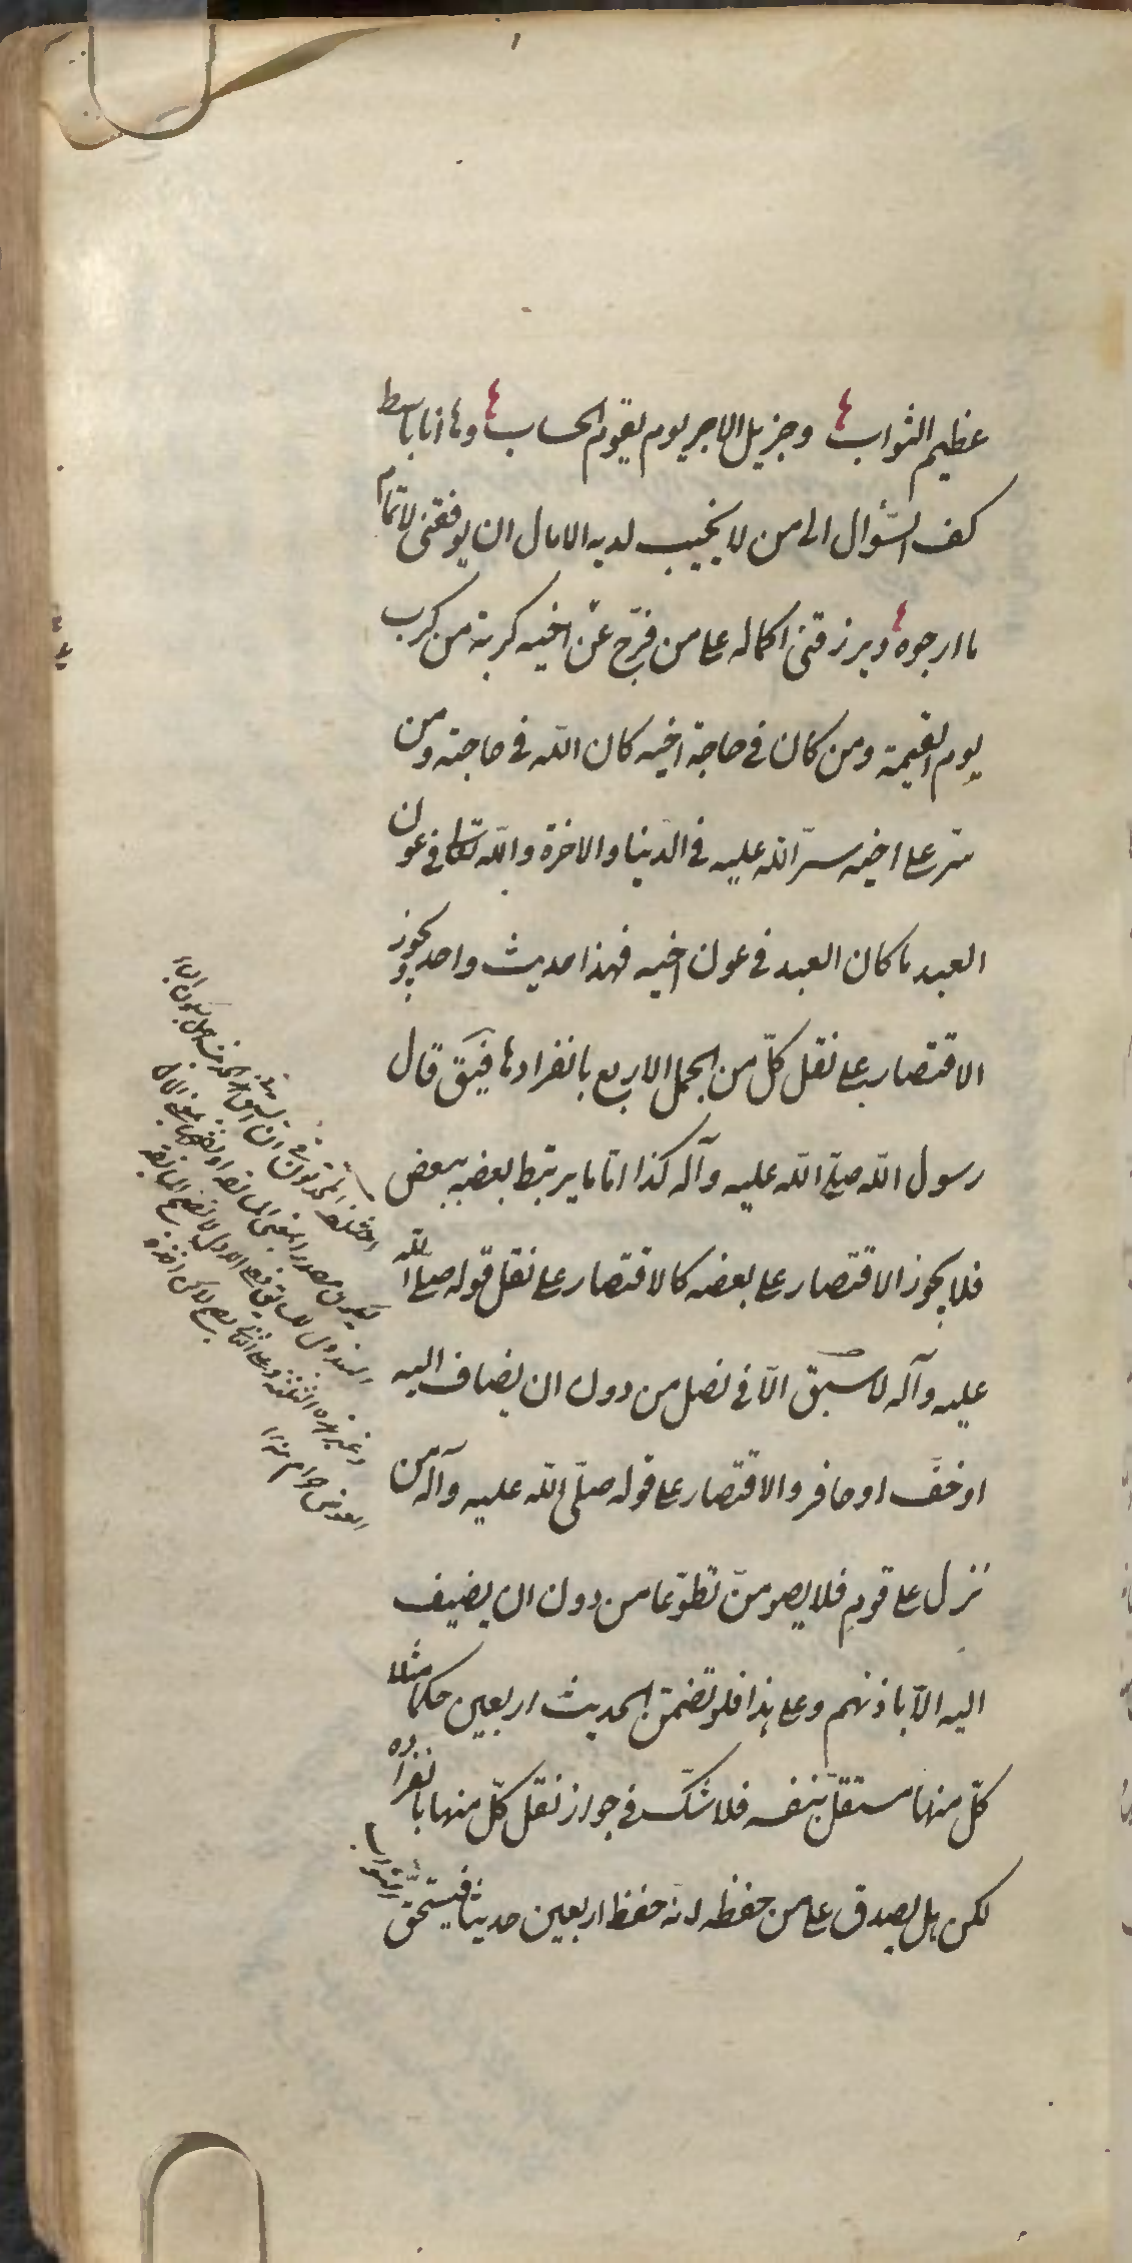 عظيم الثواب وجزيل الاجر يوم يقوم الحساب وها انا باسط
كف السّؤال الى من لا يخيب لديه الامال ان يوفقنى لاتمام
ما ارجوه ويرزقنى اكماله على من فرّج عن اخيه كربة من كرب
يوم القيمة ومن كان فى حاجة اخيه كان الله فى حاجته ومن
ستر على اخيه ستر الله عليه فى الدّنيا والاخرة والله تعالى فى عون
العبد ما كان العبد فى عون اخيه فهذا حديث واحد يجوز
الاقتصار على نقل كلّ من الجمل الاربع بانفرادها فيق قال
رسول الله صلى الله عليه وآله كذا امّا ما يرتبط بعضه ببعض
فلا يجوز الاقتصار على بعضه كالاقتصار على نقل قوله صلى الله
عليه وآله لا سبق الّا فى نصل من دون ان يضاف اليه
او خفّ او حافر والاقتصار على قوله صلّى الله عليه وآله من
نزل على قوم فلا يصومنّ تطوّعا من دون ان يضيف
اليه الّا باذنهم وعلى هذا فلو تضمّن الحديث اربعين حكما مثلا
كلّ منها مستقلّ بنفسه فلا شكّ فى جواز نقل كلّ منها بانفراده
لكن هل يصدق على من حفظه انّه حفظ اربعين حديثا فيستحقّ
اختلف المحدّثون فى ان السبق